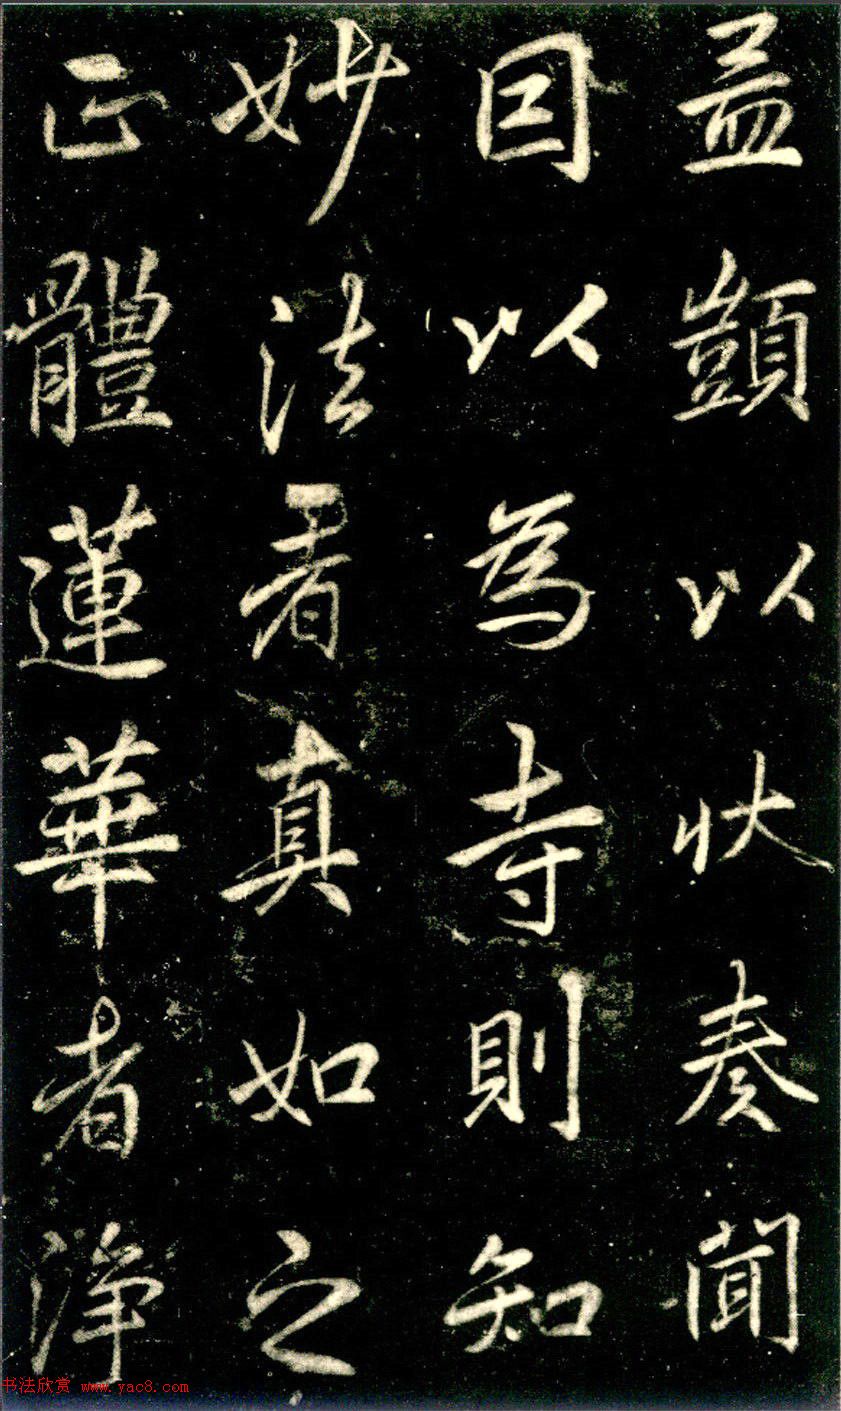 孟顗以狀奏聞
因以為寺則知
妙法者真如之
正體蓮華者淨
书法欣赏 www.yac8.com